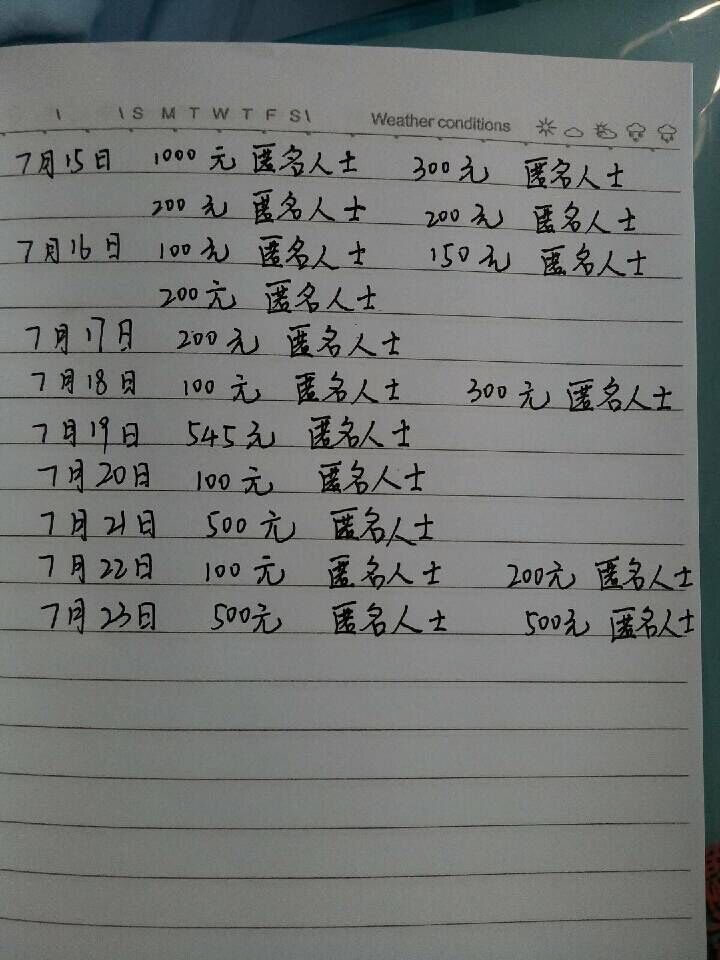 \ \ S M T W T F S \ Weather conditions
7月15日 1000元 匿名人士 300元 匿名人士
200元 匿名人士 200元 匿名人士
7月16日 100元 匿名人士 150元 匿名人士
200元 匿名人士
7月17日 200元 匿名人士
7月18日 100元 匿名人士 300元 匿名人士
7月19日 545元 匿名人士
7月20日 100元 匿名人士
7月21日 500元 匿名人士
7月22日 100元 匿名人士 200元 匿名人士
7月23日 500元 匿名人士 500元 匿名人士